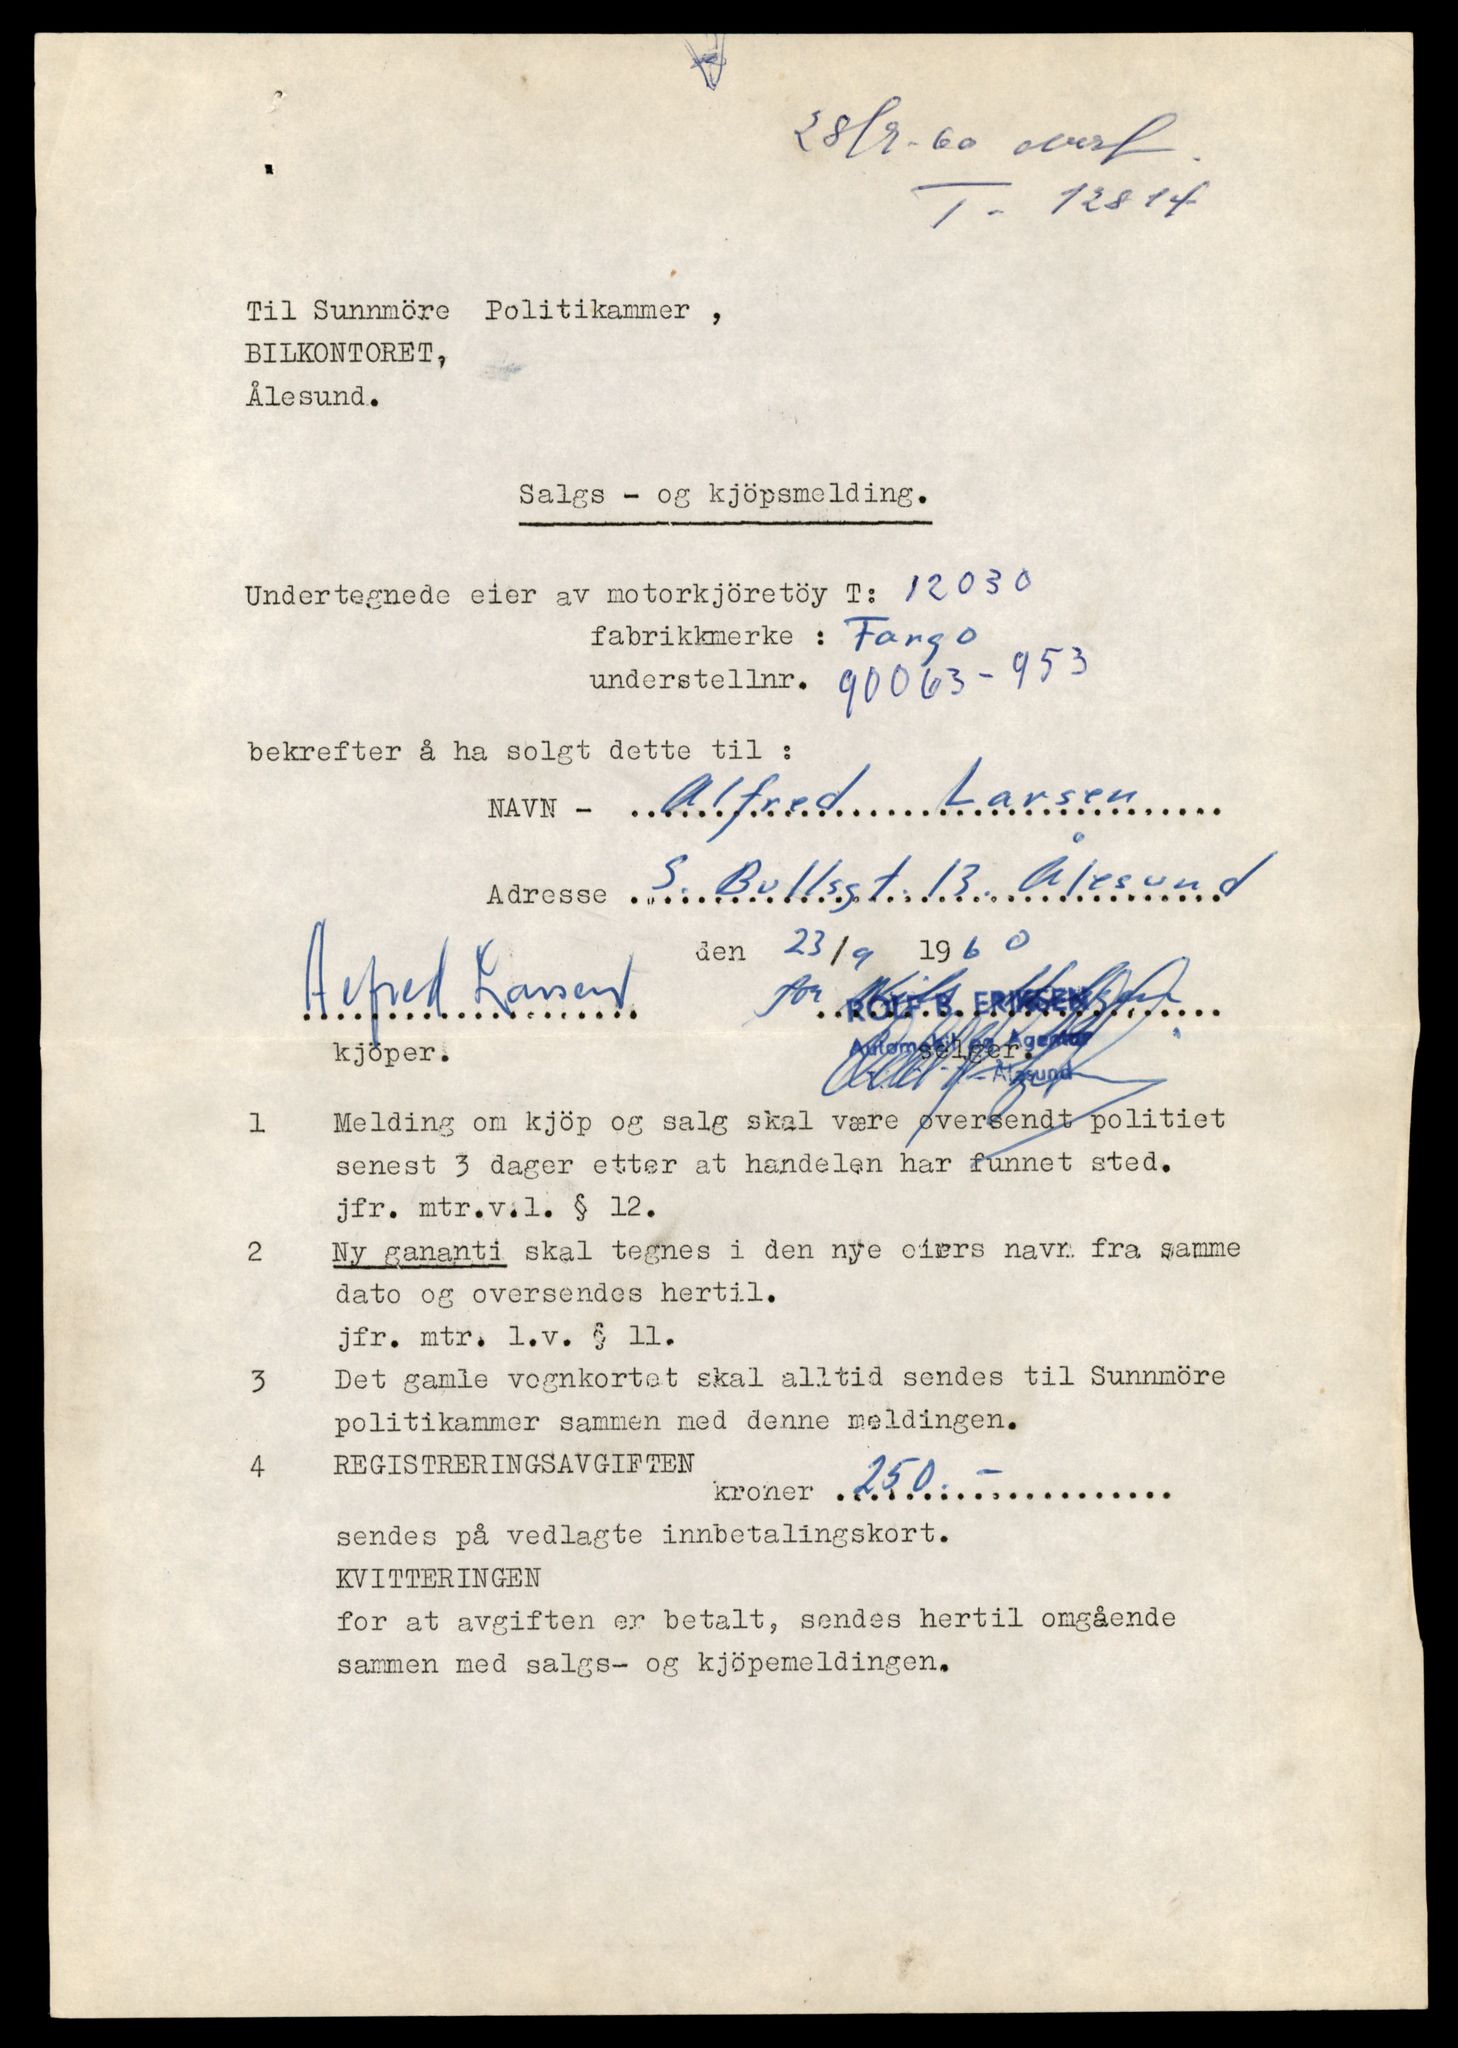 28/9-60 overf.
T- 12814
Til Sunnmöre Politikammer ,
BILKONTORET,
Ålesund.
Salgs - og kjöpsmelding.
Undertegnede eier av motorkjöretöy T: 12030
fabrikkmerke : Fargo
understellnr. 90063-953
bekrefter å ha solgt dette til :
NAVN - Alfred Larsen
Adresse S. Bullsgt. 13. Ålesund
den 23/9 1960
Alfred Larsen for
ROLF B. ERIKSEN
Automobil og Agentur
Ålesund
kjöper. selger.
1 Melding om kjöp og salg skal være oversendt politiet
senest 3 dager etter at handelen har funnet sted.
jfr. mtr.v.l. § 12.
2 Ny gananti skal tegnes i den nye eiers navn fra samme
dato og oversendes hertil.
jfr. mtr. l.v. § 11.
3 Det gamle vognkortet skal alltid sendes til Sunnmöre
politikammer sammen med denne meldingen.
4 REGISTRERINGSAVGIFTEN
kroner 250.-
sendes på vedlagte innbetalingskort.
KVITTERINGEN
for at avgiften er betalt, sendes hertil omgående
sammen med salgs- og kjöpemeldingen.